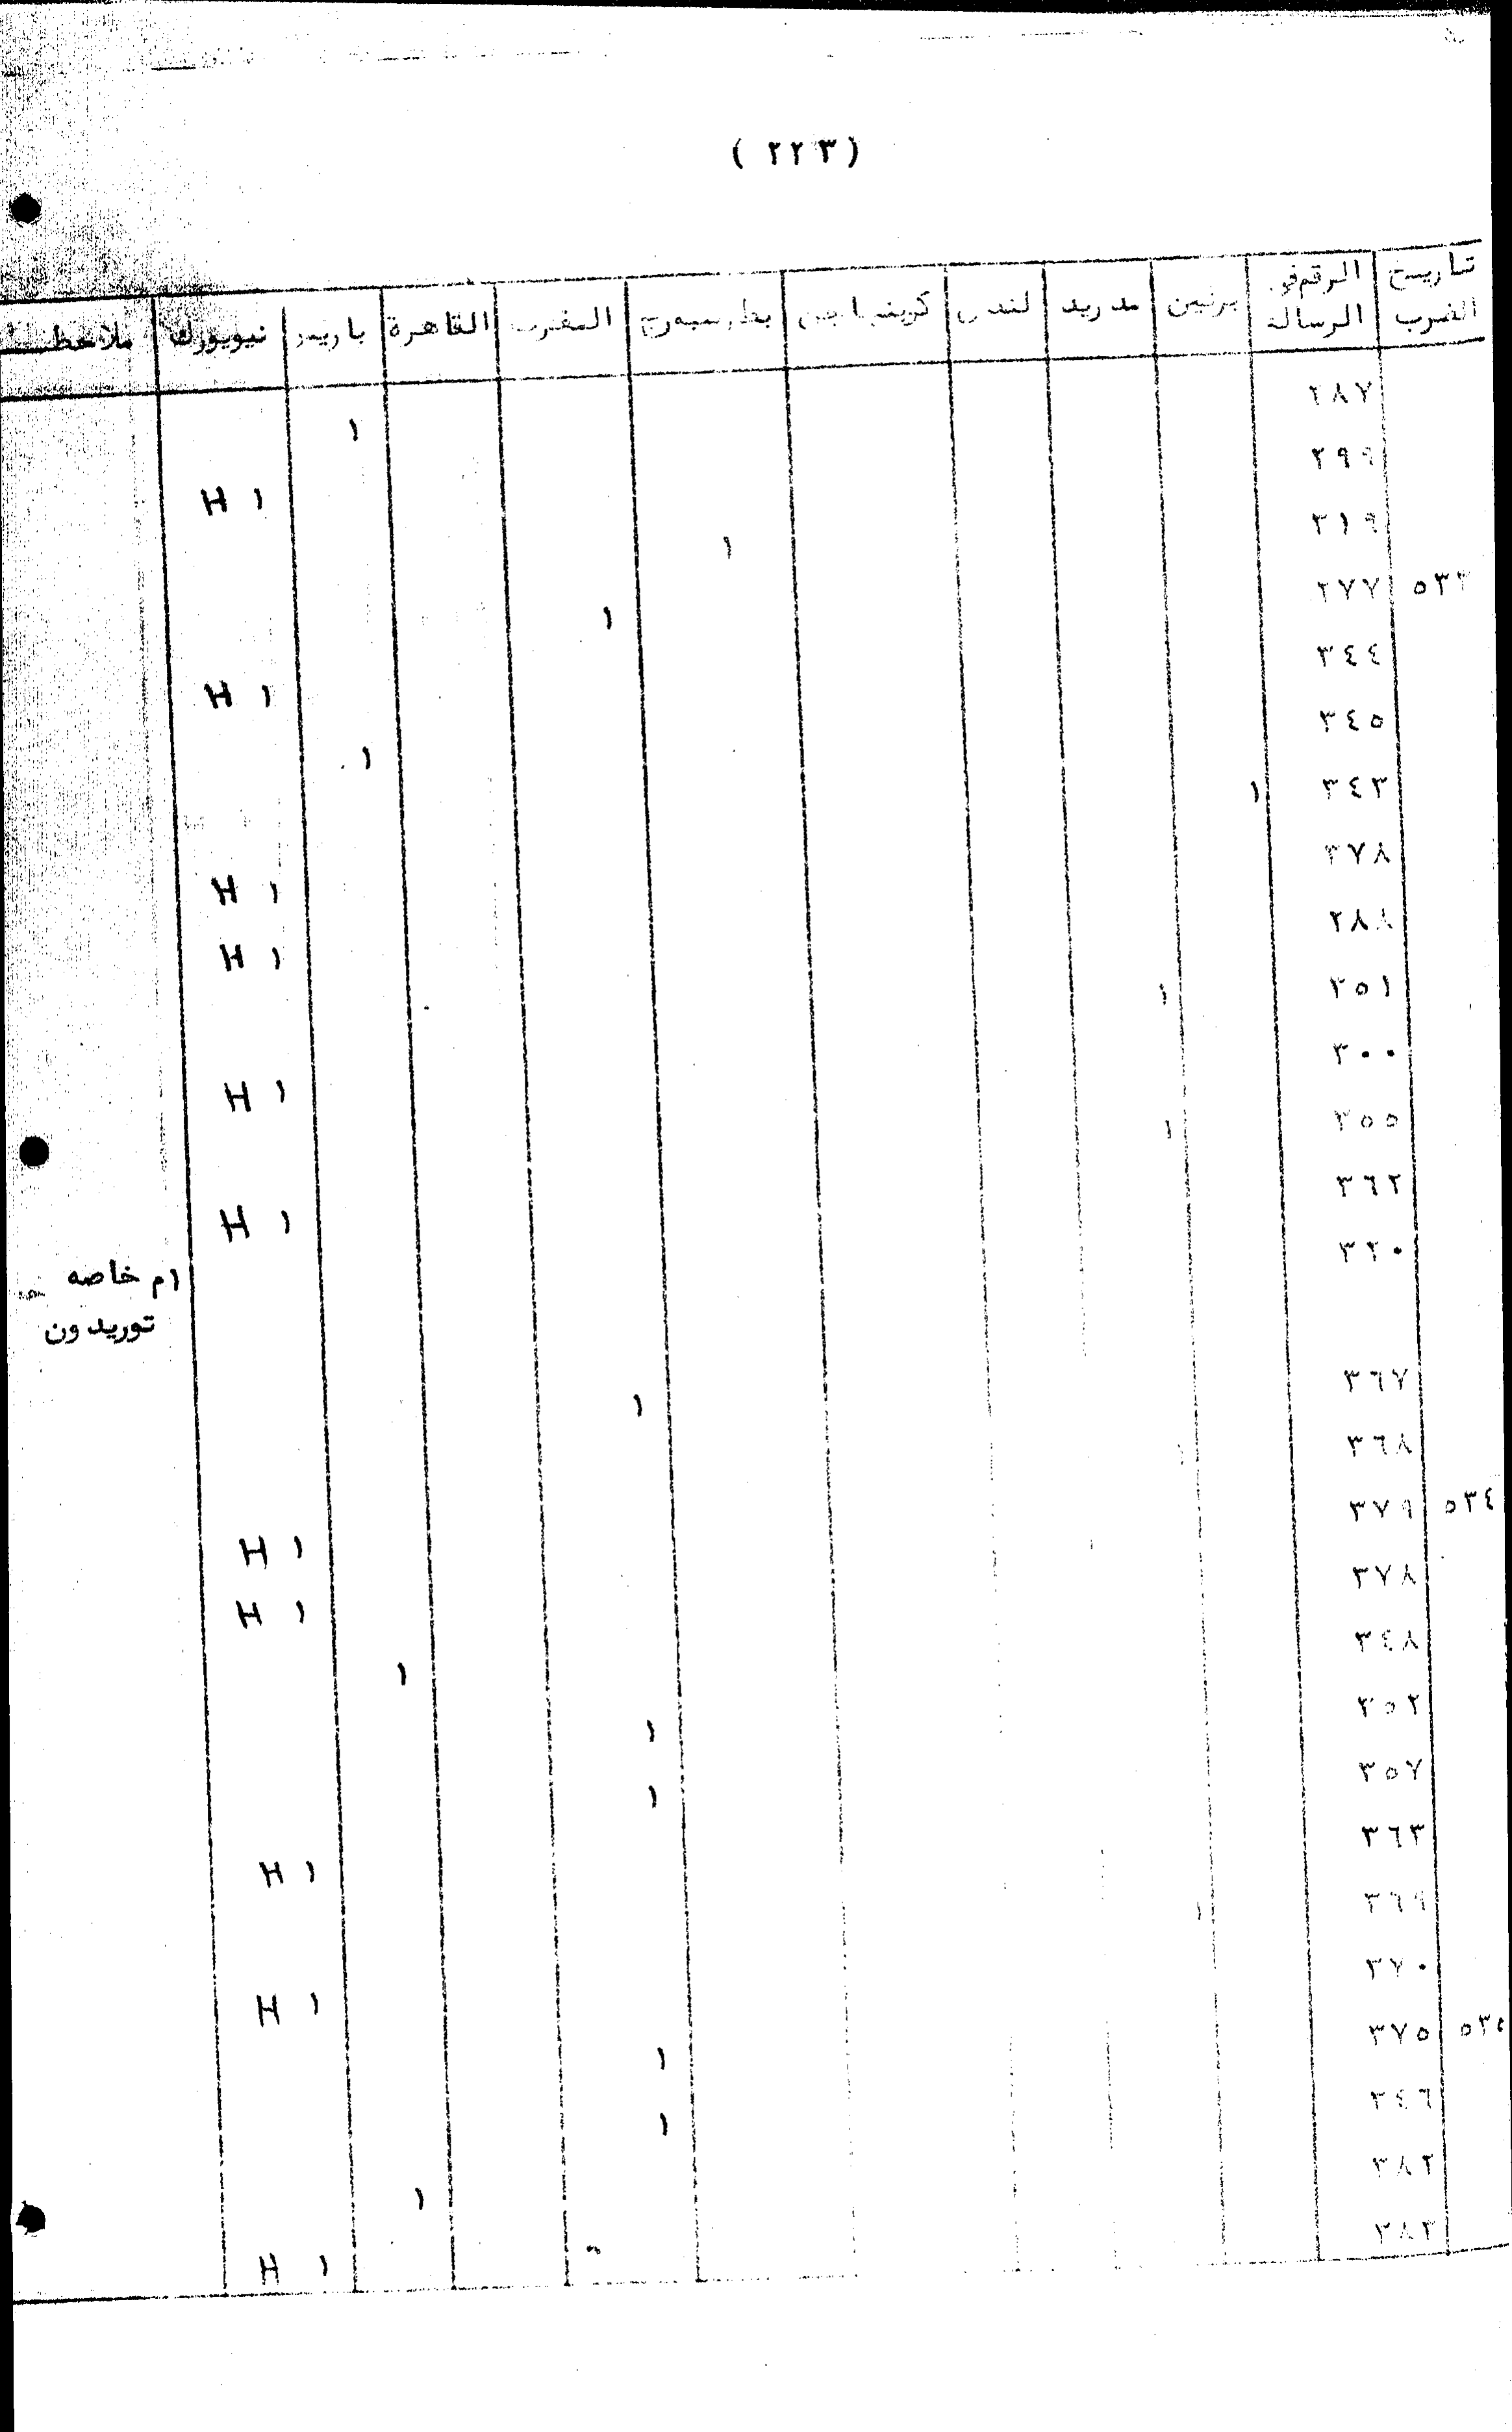 ( ٢٢٣ )
تاريخ الضرب | الرقم في الرسالة | برلين | مدريد | لندن | كوبنهاجن | بطرسبورج | المغرب | القاهرة | باريس | نيويورك | ملاحظـ
٢٨٧ ١
٢٩٩ ١ H
٣١٩ ١
٢٧٧ ١
٣٤٤ ١ H
٣٤٥ ١
٣٤٣ ١
٢٧٨ ١ H
٢٨٨ ١ H
٣٥١ ١
٣٠٠ ١ H
٣٥٥ ١
٣٦٢ ١ H
٣٢٠ ١م خاصه
توريدون
٣٦٧ ١
٣٦٨ ١
٥٣٤ ٣٧٩ ١ H
٣٧٨ ١ H
٣٤٨ ١
٣٥٢ ١
٣٥٧ ١
٣٦٣ ١ H
٣٦٩ ١
٣٧٠ ١ H
٥٣٤ ٣٧٥ ١
٣٤٦ ١
٣٨٢ ١
٣٨٣ ١ H